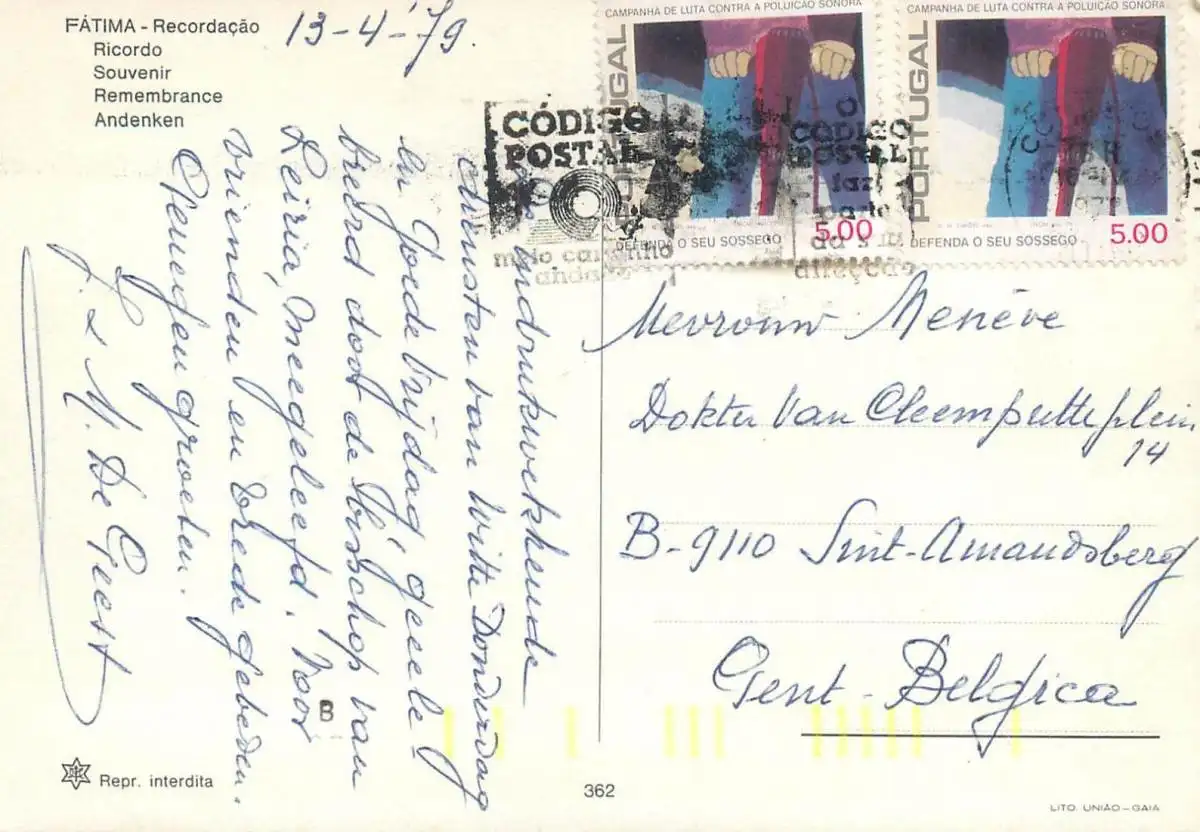 FÁTIMA - Recordação
Ricordo
Souvenir
Remembrance
Andenken
13-4-'79.
indrukwekkende
diensten van Witte Donderdag
en Goede Vrijdag, geceleb
breerd door de Bisschop van
Leiria, meegeleefd. Voor
vrienden en vrede gebeden.
Genegen groeten.
J. & M. De Geest
CAMPANHA DE LUTA CONTRA A POLUIÇÃO SONORA
PORTUGAL
DEFENDA O SEU SOSSEGO
5.00
CAMPANHA DE LUTA CONTRA A POLUIÇÃO SONORA
PORTUGAL
DEFENDA O SEU SOSSEGO
5.00
CÓDIGO
POSTAL
meio caminho
andado
O
CÓDIGO
POSTAL
faz
parte
da sua
direcção
Mevrouw Menève
Dokter Van Cleemputteplein
14
B-9110 Sint-Amandsberg
Gent - Belgica
B
Repr. interdita
362
LITO. UNIÃO - GAIA